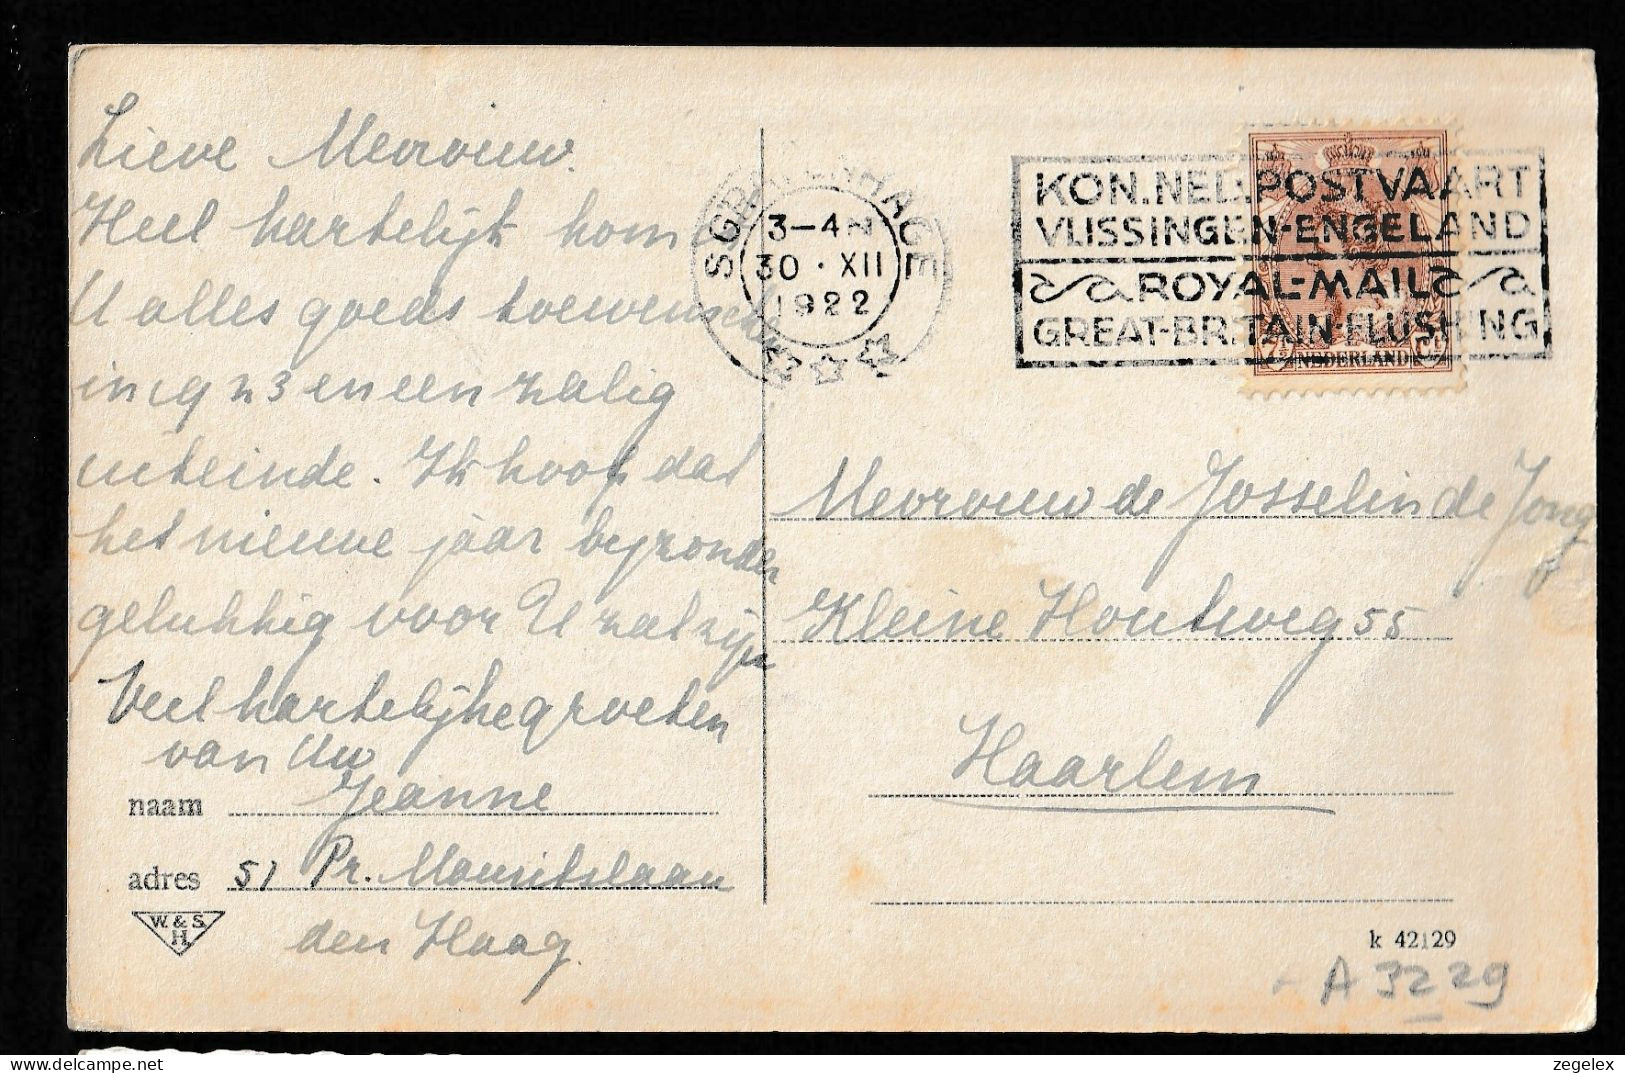 Lieve Mevrouw.
Heel hartelijk kom
U alles goeds toewenschen
in 1923 en een zalig
uiteinde. Ik hoop dat
het nieuwe jaar byzonder
gelukkig voor U zal zijn
Veel hartelijke groeten
van Uw
Jeanne
naam
adres 51 Pr. Mauritslaan
den Haag.
W. & S.
H.
'S GRAVENHAGE
3-4 N
30 · XII
1922
KON. NED. POSTVAART
VLISSINGEN-ENGELAND
ROYAL-MAIL
GREAT-BRITAIN-FLUSHING
7½ NEDERLAND Ct
Mevrouw de Josselin de Jong
Kleine Houtweg 55
Haarlem
k 42129
A 3229
zegelex